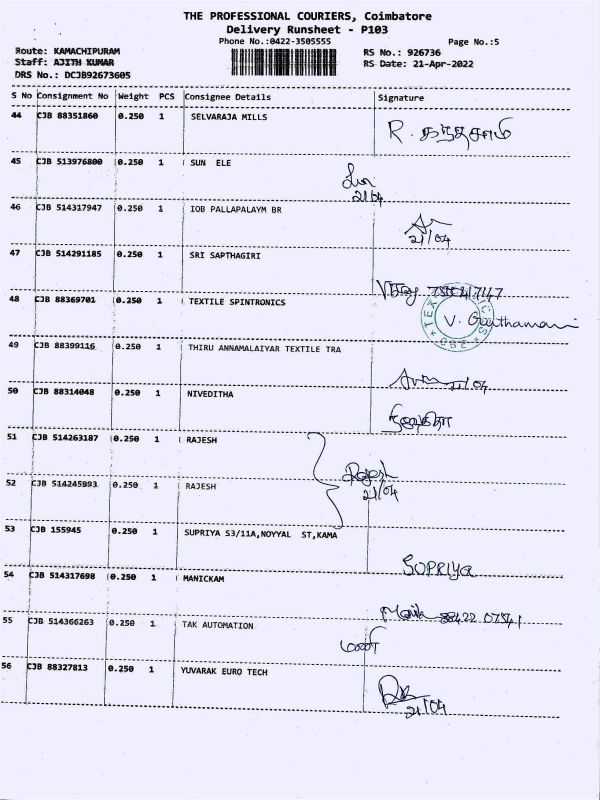 THE PROFESSIONAL COURIERS, Coimbatore
Delivery Runsheet - P103
Phone No.:0422-3505555
Page No.:5
Route: KAMACHIPURAM
RS No.: 926736
Staff: AJITH KUMAR
RS Date: 21-Apr-2022
DRS No.: DCJB92673605
S No Consignment No Weight PCS Consignee Details Signature
44 CJB 88351860 0.250 1 SELVARAJA MILLS
R. கந்தசாமி
45 CJB 513976800 0.250 1 SUN ELE
21/04
46 CJB 514317947 0.250 1 IOB PALLAPALAYM BR
21/04
47 CJB 514291185 0.250 1 SRI SAPTHAGIRI
48 CJB 88369701 0.250 1 TEXTILE SPINTRONICS
V. Geethamani
49 CJB 88399116 0.250 1 THIRU ANNAMALAIYAR TEXTILE TRA
21/04
50 CJB 88314048 0.250 1 NIVEDITHA
நிவேதிதா
51 CJB 514263187 0.250 1 RAJESH
Rajesh
21/04
52 CJB 514245993 0.250 1 RAJESH
53 CJB 155945 0.250 1 SUPRIYA S3/11A,NOYYAL ST,KAMA
SUPRIYA
54 CJB 514317698 0.250 1 MANICKAM
55 CJB 514366263 0.250 1 TAK AUTOMATION
மணி
56 CJB 88327813 0.250 1 YUVARAK EURO TECH
21/04